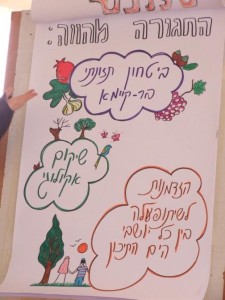 החגורה מהווה:
ביטחון תזונתי
בר-קיימא
שיקום
אקולוגי
הזדמנות
לשיתופ פעולה
בין כל יושבי
הים התיכון